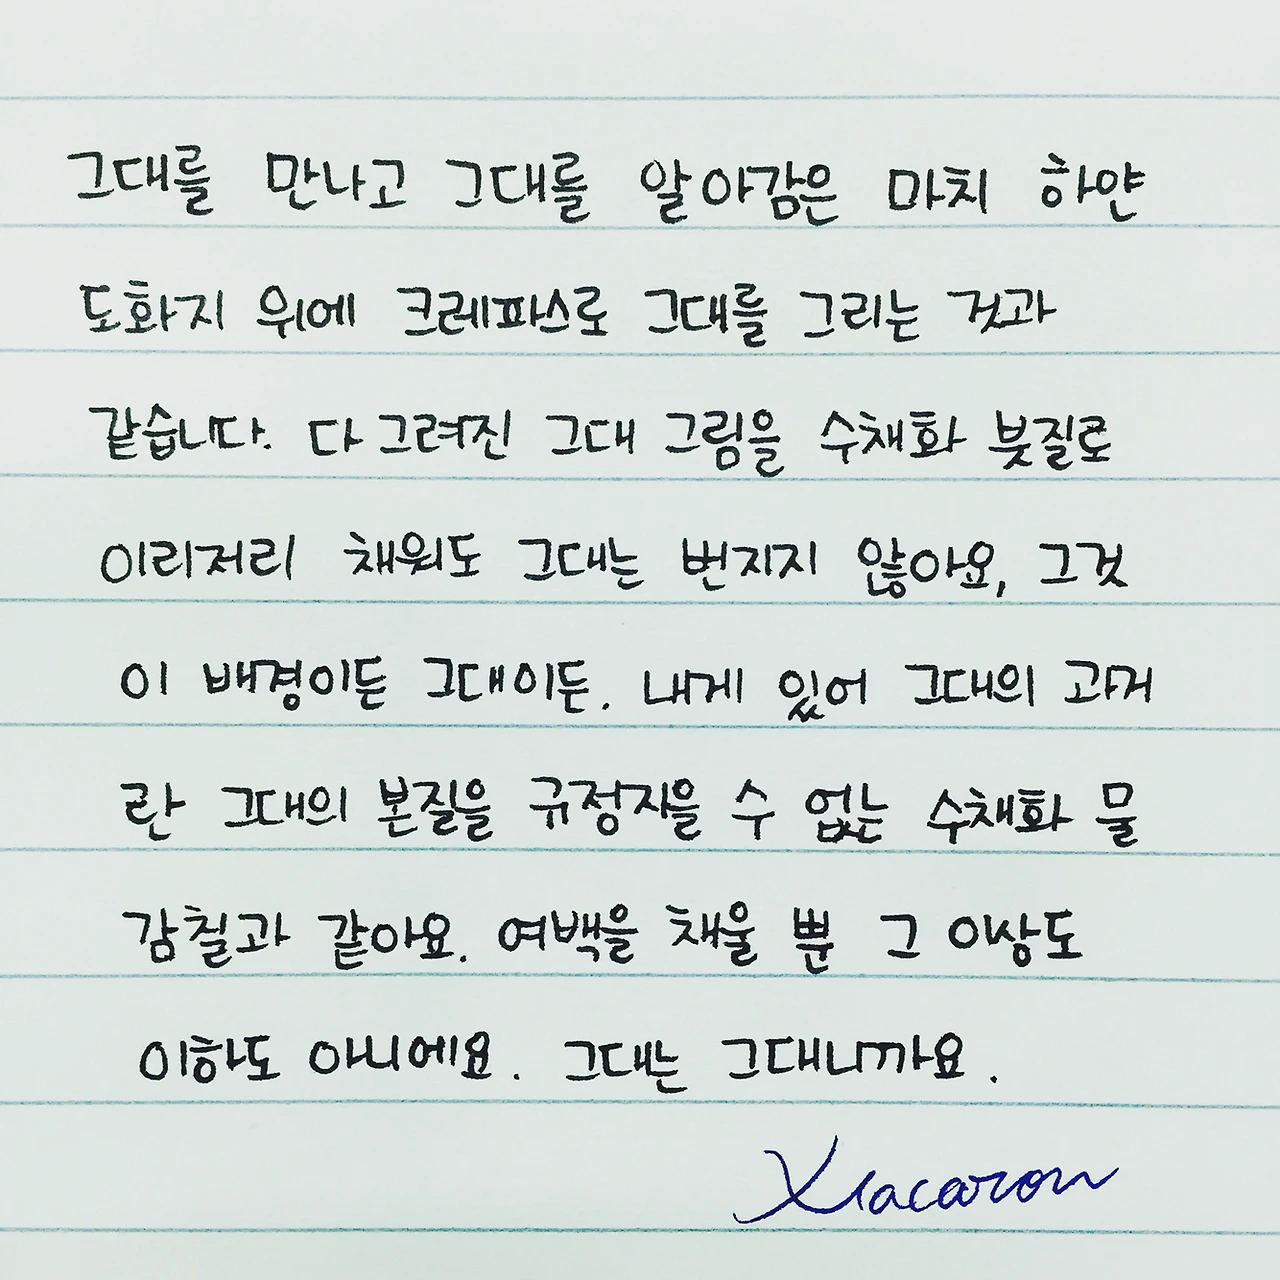 그대를 만나고 그대를 알아감은 마치 하얀
도화지 위에 크레파스로 그대를 그리는 것과
같습니다. 다 그려진 그대 그림을 수채화 붓질로
이리저리 채워도 그대는 번지지 않아요, 그것
이 배경이든 그대이든. 내게 있어 그대의 과거
란 그대의 본질을 규정지을 수 없는 수채화 물
감칠과 같아요. 여백을 채울 뿐 그 이상도
이하도 아니에요. 그대는 그대니까요.